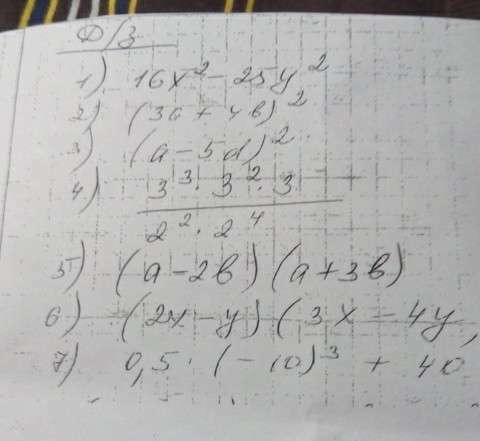 Д/з
1) 16x² - 25y²
2) (3a + 4b)²
3) (a - 5d)²
4) 3³ · 3² · 3
2² · 2⁴
5) (a - 2b)(a + 3b)
6) (2x - y)(3x - 4y
7) 0,5 · (-10)³ + 40